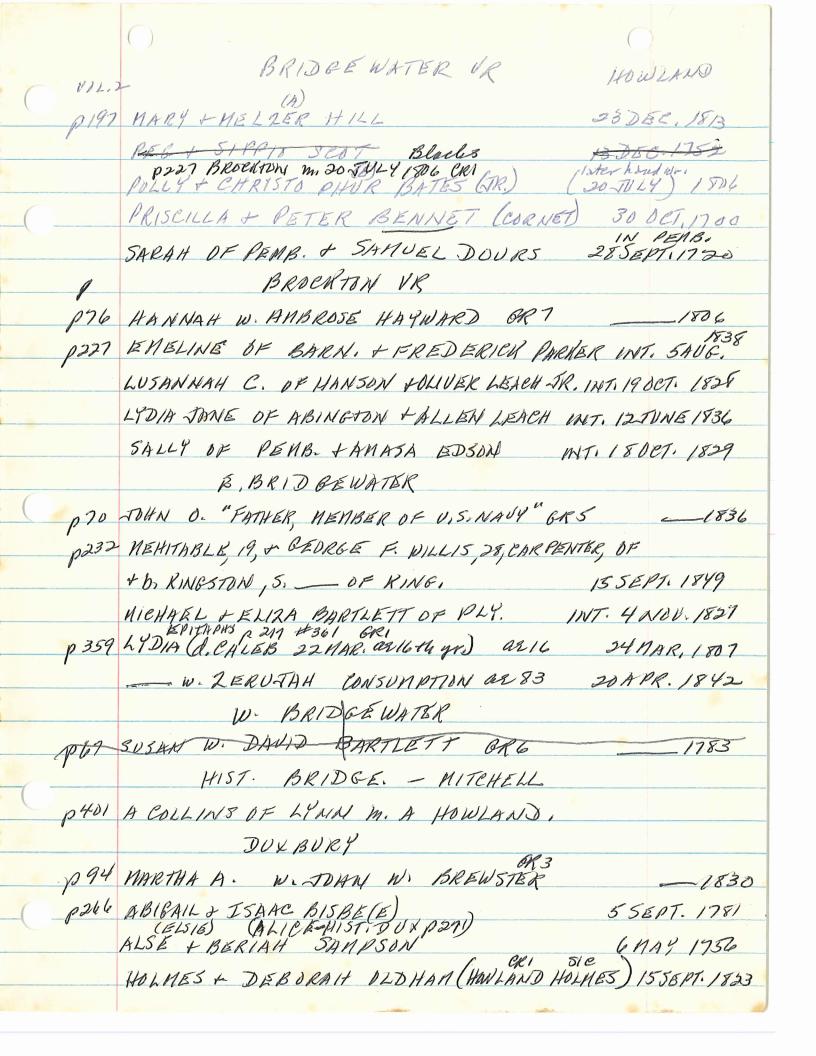 BRIDGEWATER VR HOWLAND
VOL.2
(A)
p197 MARY + MELZER HILL 23 DEC. 1813
PEG + SIPPIO SCOT Blacks 13 DEC. 1752
p227 BROCKTON m. 20 JULY 1806 CR1
POLLY + CHRISTOPHUR BATES (JR.) (later hand wr. 20 JULY) 1806
PRISCILLA + PETER BENNET (CORNET) 30 OCT, 1700
SARAH OF PEMB. + SAMUEL DOURS IN PEMB. 28 SEPT. 1720
BROCKTON VR
p76 HANNAH W. AMBROSE HAYWARD GR7 —— 1806
p227 EMELINE OF BARN. + FREDERICK PARKER INT. 5 AUG. 1838
LUSANNAH C. OF HANSON + OLIVER LEACH JR. INT. 19 OCT. 1828
LYDIA JANE OF ABINGTON + ALLEN LEACH INT. 12 JUNE 1836
SALLY OF PEMB. + AMASA EDSON INT. 18 OCT. 1829
E. BRIDGEWATER
p70 JOHN O. "FATHER, MEMBER OF U.S. NAVY" GR5 —— 1836
p232 MEHITABLE, 19, + GEORGE F. WILLIS, 28, CARPENTER, OF
+ b. KINGSTON, S. —— OF KING. 15 SEPT. 1849
MICHAEL + ELIZA BARTLETT OF PLY. INT. 4 NOV. 1827
EPITAPHS p 217 #361 GR1
p359 LYDIA (d. CALEB 22 MAR. ae 16th yr) ae 16 24 MAR, 1807
—— w. ZERUIAH CONSUMPTION ae 83 20 APR. 1842
W. BRIDGEWATER
p67 SUSAN W. DAVID BARTLETT GR6 —— 1783
HIST. BRIDGE. — MITCHELL
p401 A COLLINS OF LYNN m. A HOWLAND.
DUXBURY
p94 MARTHA A. W. JOHN W. BREWSTER GR3 —— 1830
p266 ABIGAIL + ISAAC BISBE(E) 5 SEPT. 1781
(ELSIE) (ALICE-HIST. DUX p271)
ALSE + BERIAH SAMPSON 6 MAY 1756
CR1 SIC
HOLMES + DEBORAH OLDHAM (HOWLAND HOLMES) 15 SEPT. 1823